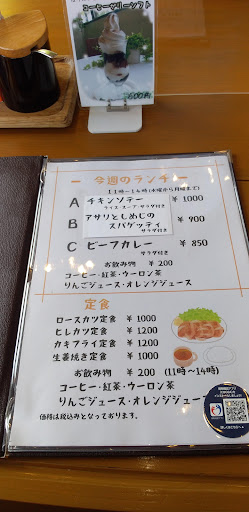 コーヒーゼリーソフト
600円
ー 今週のランチ ー
11時～14時(水曜から月曜まで)
A チキンソテー ¥ 1000
ライス・スープ・サラダ付き
B アサリとしめじの
スパゲッティ ¥ 900
サラダ付き
C ビーフカレー ¥ 850
サラダ付き
お飲み物 ¥ 200
コーヒー・紅茶・ウーロン茶
りんごジュース・オレンジジュース
定食
ロースカツ定食 ¥ 1000
ヒレカツ定食 ¥ 1200
カキフライ定食 ¥ 1200
生姜焼き定食 ¥ 1000
お飲み物 ¥ 200 (11時～14時)
コーヒー・紅茶・ウーロン茶
りんごジュース・オレンジジュース
価格は税込みとなっております。